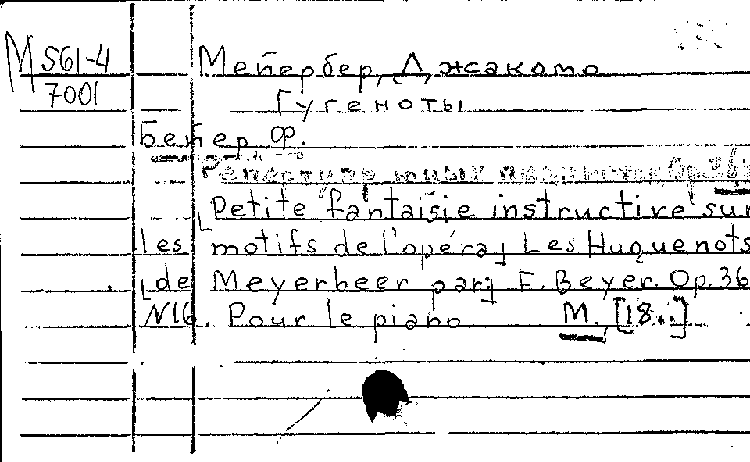 М 561-4 Мейербер, Джакомо
7001 Гугеноты
Бейер Ф.
Репертуар юных пианистов Op. 36
Petite fantaisie instructive sur
les motifs de l'opéra] Les Huguenots
[de Meyerbeer par] F. Beyer. Op. 36
N16. Pour le piano М., [18..]